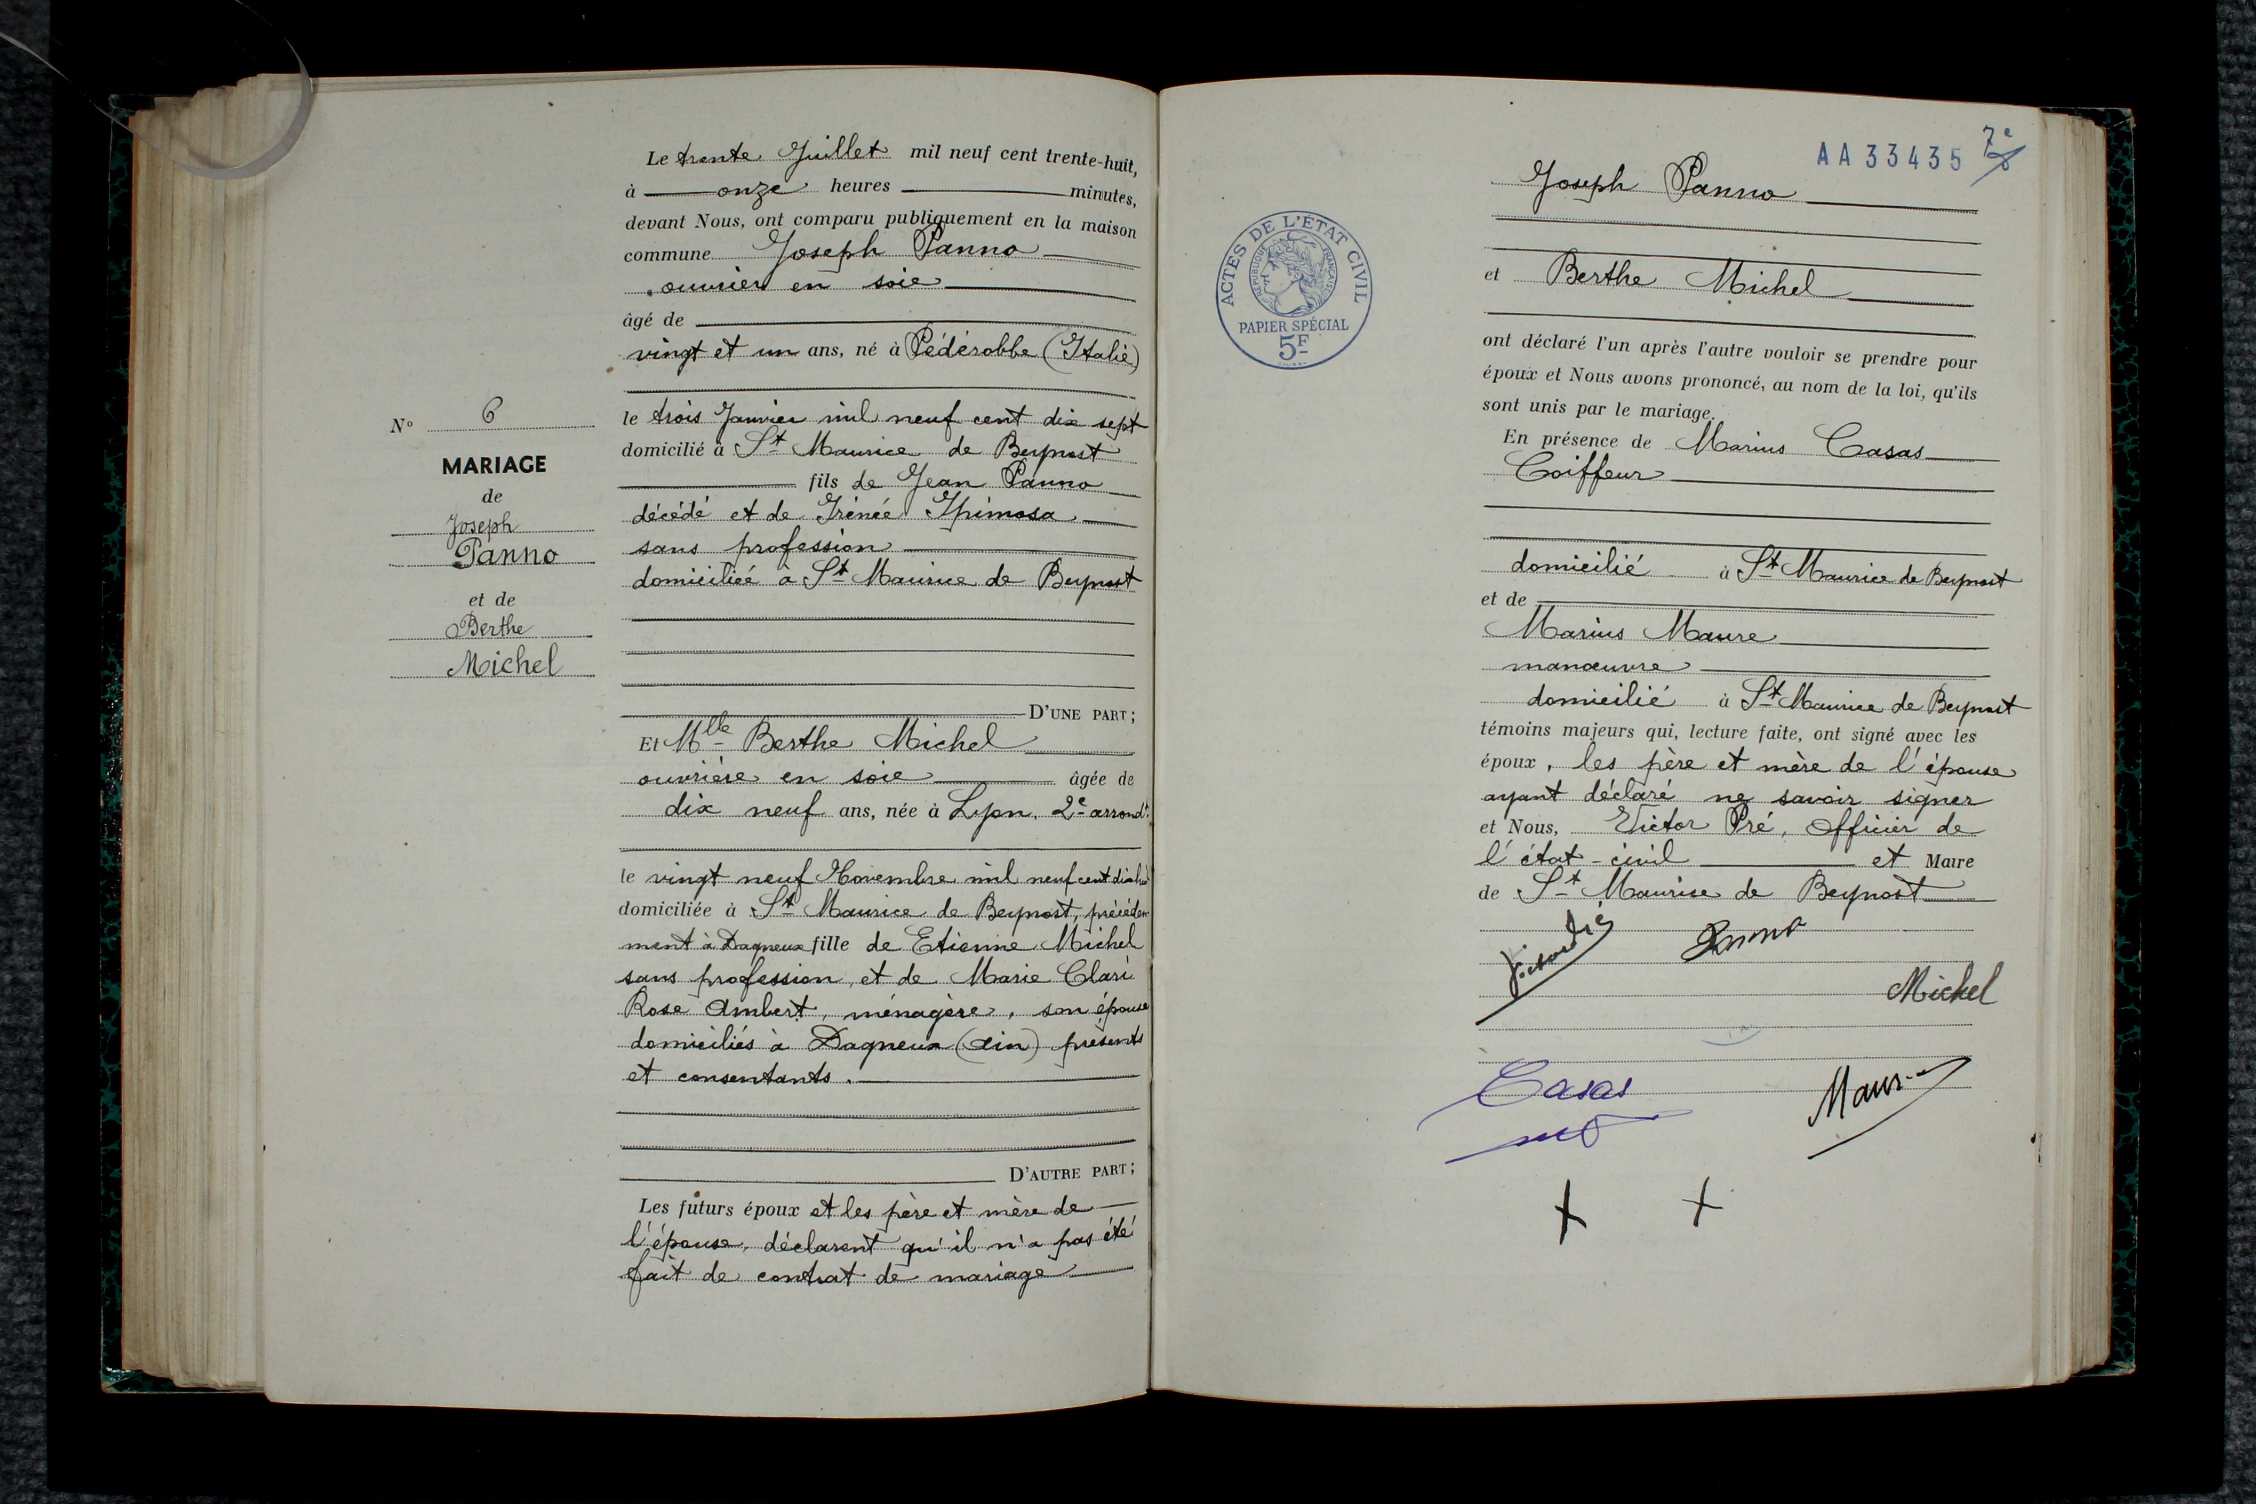 N° 6
MARIAGE
de
Joseph
Panno
et de
Berthe
Michel
Le trente Juillet mil neuf cent trente-huit,
à onze heures minutes,
devant Nous, ont comparu publiquement en la maison
commune Joseph Panno
ouvrier en soie
âgé de
vingt et un ans, né à Pédérobbe (Italie)
le trois Janvier mil neuf cent dix sept
domicilié à St Maurice de Beynost
fils de Jean Panno
décédé et de Irénée Spimosa
sans profession
domiciliée à St Maurice de Beynost
D'UNE PART;
Et Mlle Berthe Michel
ouvrière en soie âgée de
dix neuf ans, née à Lyon, 2e arrondt
le vingt neuf Novembre mil neuf cent dix huit
domiciliée à St Maurice de Beynost, précédem
ment à Dagneux fille de Etienne Michel
sans profession, et de Marie Clari
Rose Ambert, ménagère, son épouse
domiciliés à Dagneux (Ain) présents
et consentants.
D'AUTRE PART;
Les futurs époux et les père et mère de
l'épouse, déclarent qu'il n'a pas été
fait de contrat de mariage
ACTES DE L'ÉTAT CIVIL
RÉPUBLIQUE FRANÇAISE
PAPIER SPÉCIAL
5F
AA33435 7e
Joseph Panno
et Berthe Michel
ont déclaré l'un après l'autre vouloir se prendre pour
époux et Nous avons prononcé, au nom de la loi, qu'ils
sont unis par le mariage.
En présence de Marius Casas
Coiffeur
domicilié à St Maurice de Beynost
et de
Marius Maure
manœuvre
domicilié à St Maurice de Beynost
témoins majeurs qui, lecture faite, ont signé avec les
époux, les père et mère de l'épouse
ayant déclaré ne savoir signer
et Nous, Victor Pré, Officier de
l'état-civil et Maire
de St Maurice de Beynost
Panno
Michel
Casas
Maure
+ +